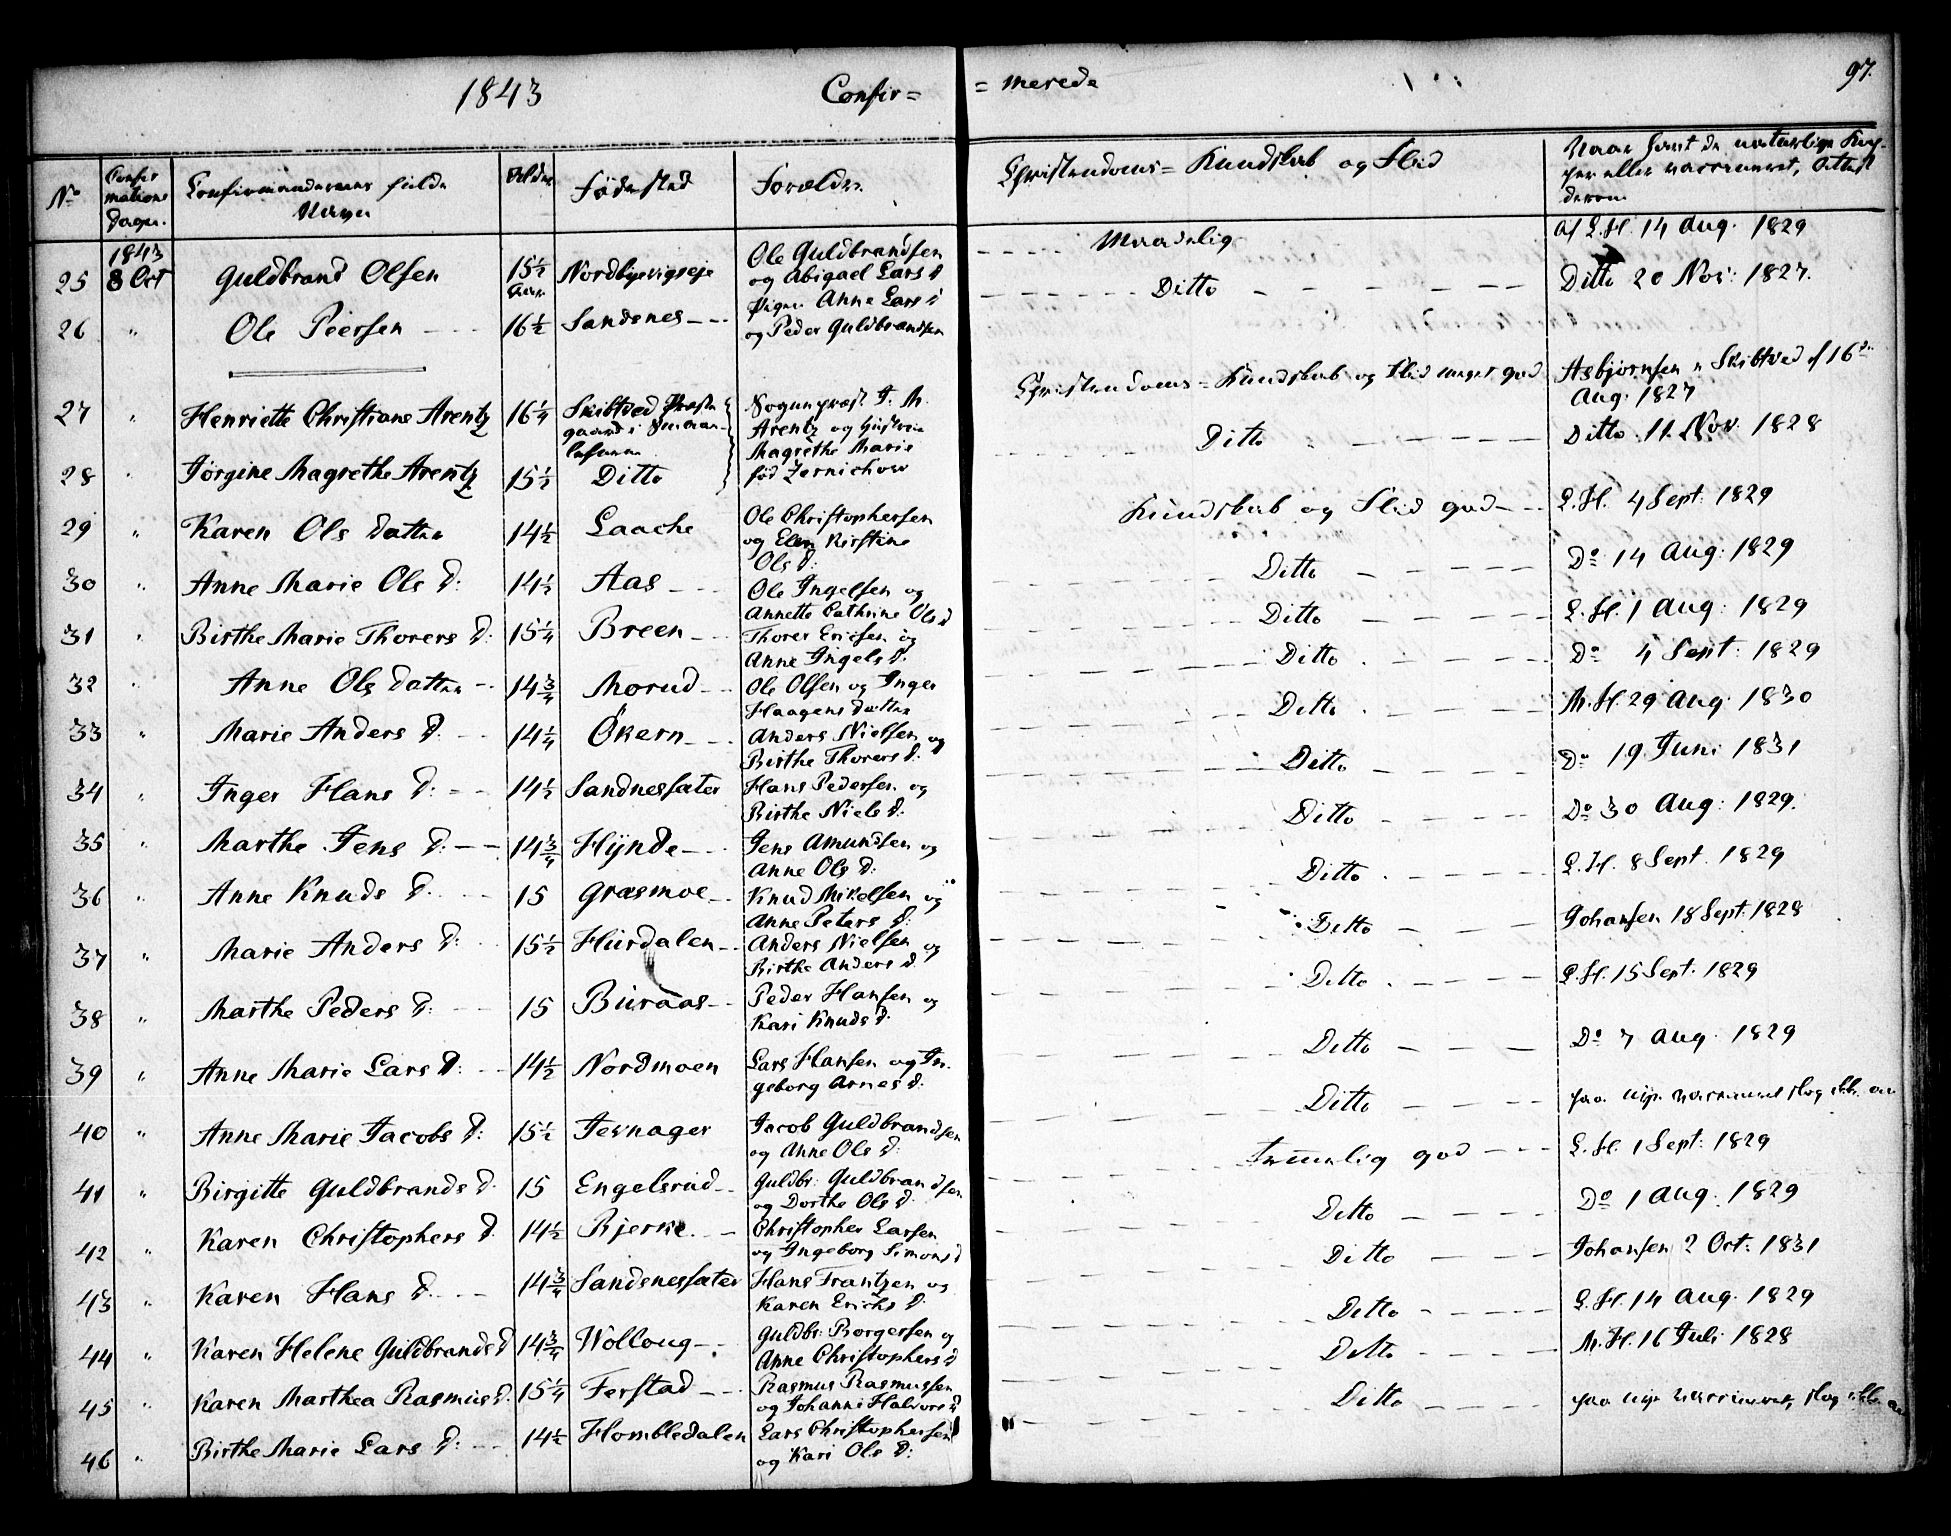 1843 Confir= = merede 97.
No Confirmations Dagen. Confirmandernes fulde Navn Alder Fødested Forældre. Christendoms= Kundskab og Flid Naar havt de naturlige Kopper eller vaccineret, Attest derom
1843
25 8 Oct Guldbrand Olsen 15½ Aar Nordbyevigseje Ole Guldbrandsen og Abigael Lars d Maadelig af L. H. 14 Aug. 1829
26 " Ole Peersen 16½ Sandsnes Pigen Anne Lars d og Peder Guldbrandsen Ditto Ditto 20 Nov: 1827.
27 " Henriette Christiane Arentz 16¼ Skibtved Præstegaard i Smaalehnene Sognepræst F. M. Arentz og Hustru Magrethe Marie fød Zernichow Christendoms= Kundskab og Flid meget god Asbjørnsen i Skibtved af 16de Aug. 1827
28 " Jørgine Magrethe Arentz 15½ Ditto Ditto Ditto 11. Nov. 1828
29 " Karen Ols datter 14½ Laache Ole Christophersen og Elen Kirstine Ols d: Kundskab og Flid god L. H. 4 Sept. 1829
30 " Anne Marie Ols d: 14½ Aas Ole Ingelsen og Annette Cathrine Ols d Ditto Do 14 Aug: 1829
31 " Birthe Marie Thorers d: 15¼ Breen Thorer Ericsen og Anne Ingels d. Ditto L. H. 1 Aug: 1829
32 " Anne Ols datter 14¾ Morud Ole Olsen og Inger Haagens datter Ditto Do 4 Sept: 1829
33 " Marie Anders d. 14¼ Økern Anders Nielsen og Birthe Thorers d. Ditto M. H. 29 Aug. 1830
34 " Inger Hans d: 14½ Sandnessæter Hans Pedersen og Birthe Niels d. Ditto Do 19. Juni 1831
35 " Marthe Jens d: 14¾ Hynde Jens Amundsen og Anne Ols d: Ditto Do 30 Aug: 1829.
36 " Anne Knuds d. 15 Græsmoe Knud Mikelsen og Anne Peters d: Ditto L. H. 8 Sept. 1829
37 " Marie Anders d: 15½ Hurdalen Anders Nielsen og Birthe Anders d. Ditto Johansen 18 Sept: 1828
38 " Marthe Peders d: 15 Buraas Peder Hansen og Kari Knuds d. Ditto L. H. 15 Sept: 1829
39 " Anne Marie Lars d: 14½ Nordmoen Lars Hansen og Ingeborg Arnes d: Ditto Do 7 Aug. 1829
40 " Anne Marie Jacobs d: 15½ Jevnager Jacob Guldbrandsen og Anne Ols d: Ditto paa nye vaccineret slog ikke an
41 " Birgitte Guldbrands d. 15 Engelsrud Guldbr: Guldbrandsen og Dorthe Ols d. Temmelig god L. H. 1 Sept: 1829
42 " Karen Christophers d. 14½ Bjerke Christopher Larsen og Ingeborg Simons d Ditto Do 1 Aug: 1829
43 " Karen Hans d. 14¾ Sandsnessæter Hans Frantzen og Karen Erichs d. Ditto Johansen 2 Oct: 1831
44 " Karen Helene Guldbrands d 14¾ Wolloug Guldbr: Borgersen og Anne Christophers d Ditto L. H. 14 Aug. 1829
45 " Karen Marthea Rasmus d. 15¼ Ferstad Rasmus Rasmussen og Johanne Halvors d Ditto M. H. 16 Juli 1828
46 " Birthe Marie Lars d: 14½ Hombledalen Lars Christophersen og Kari Ols d: Ditto paa nye vaccineret, slog ikke an